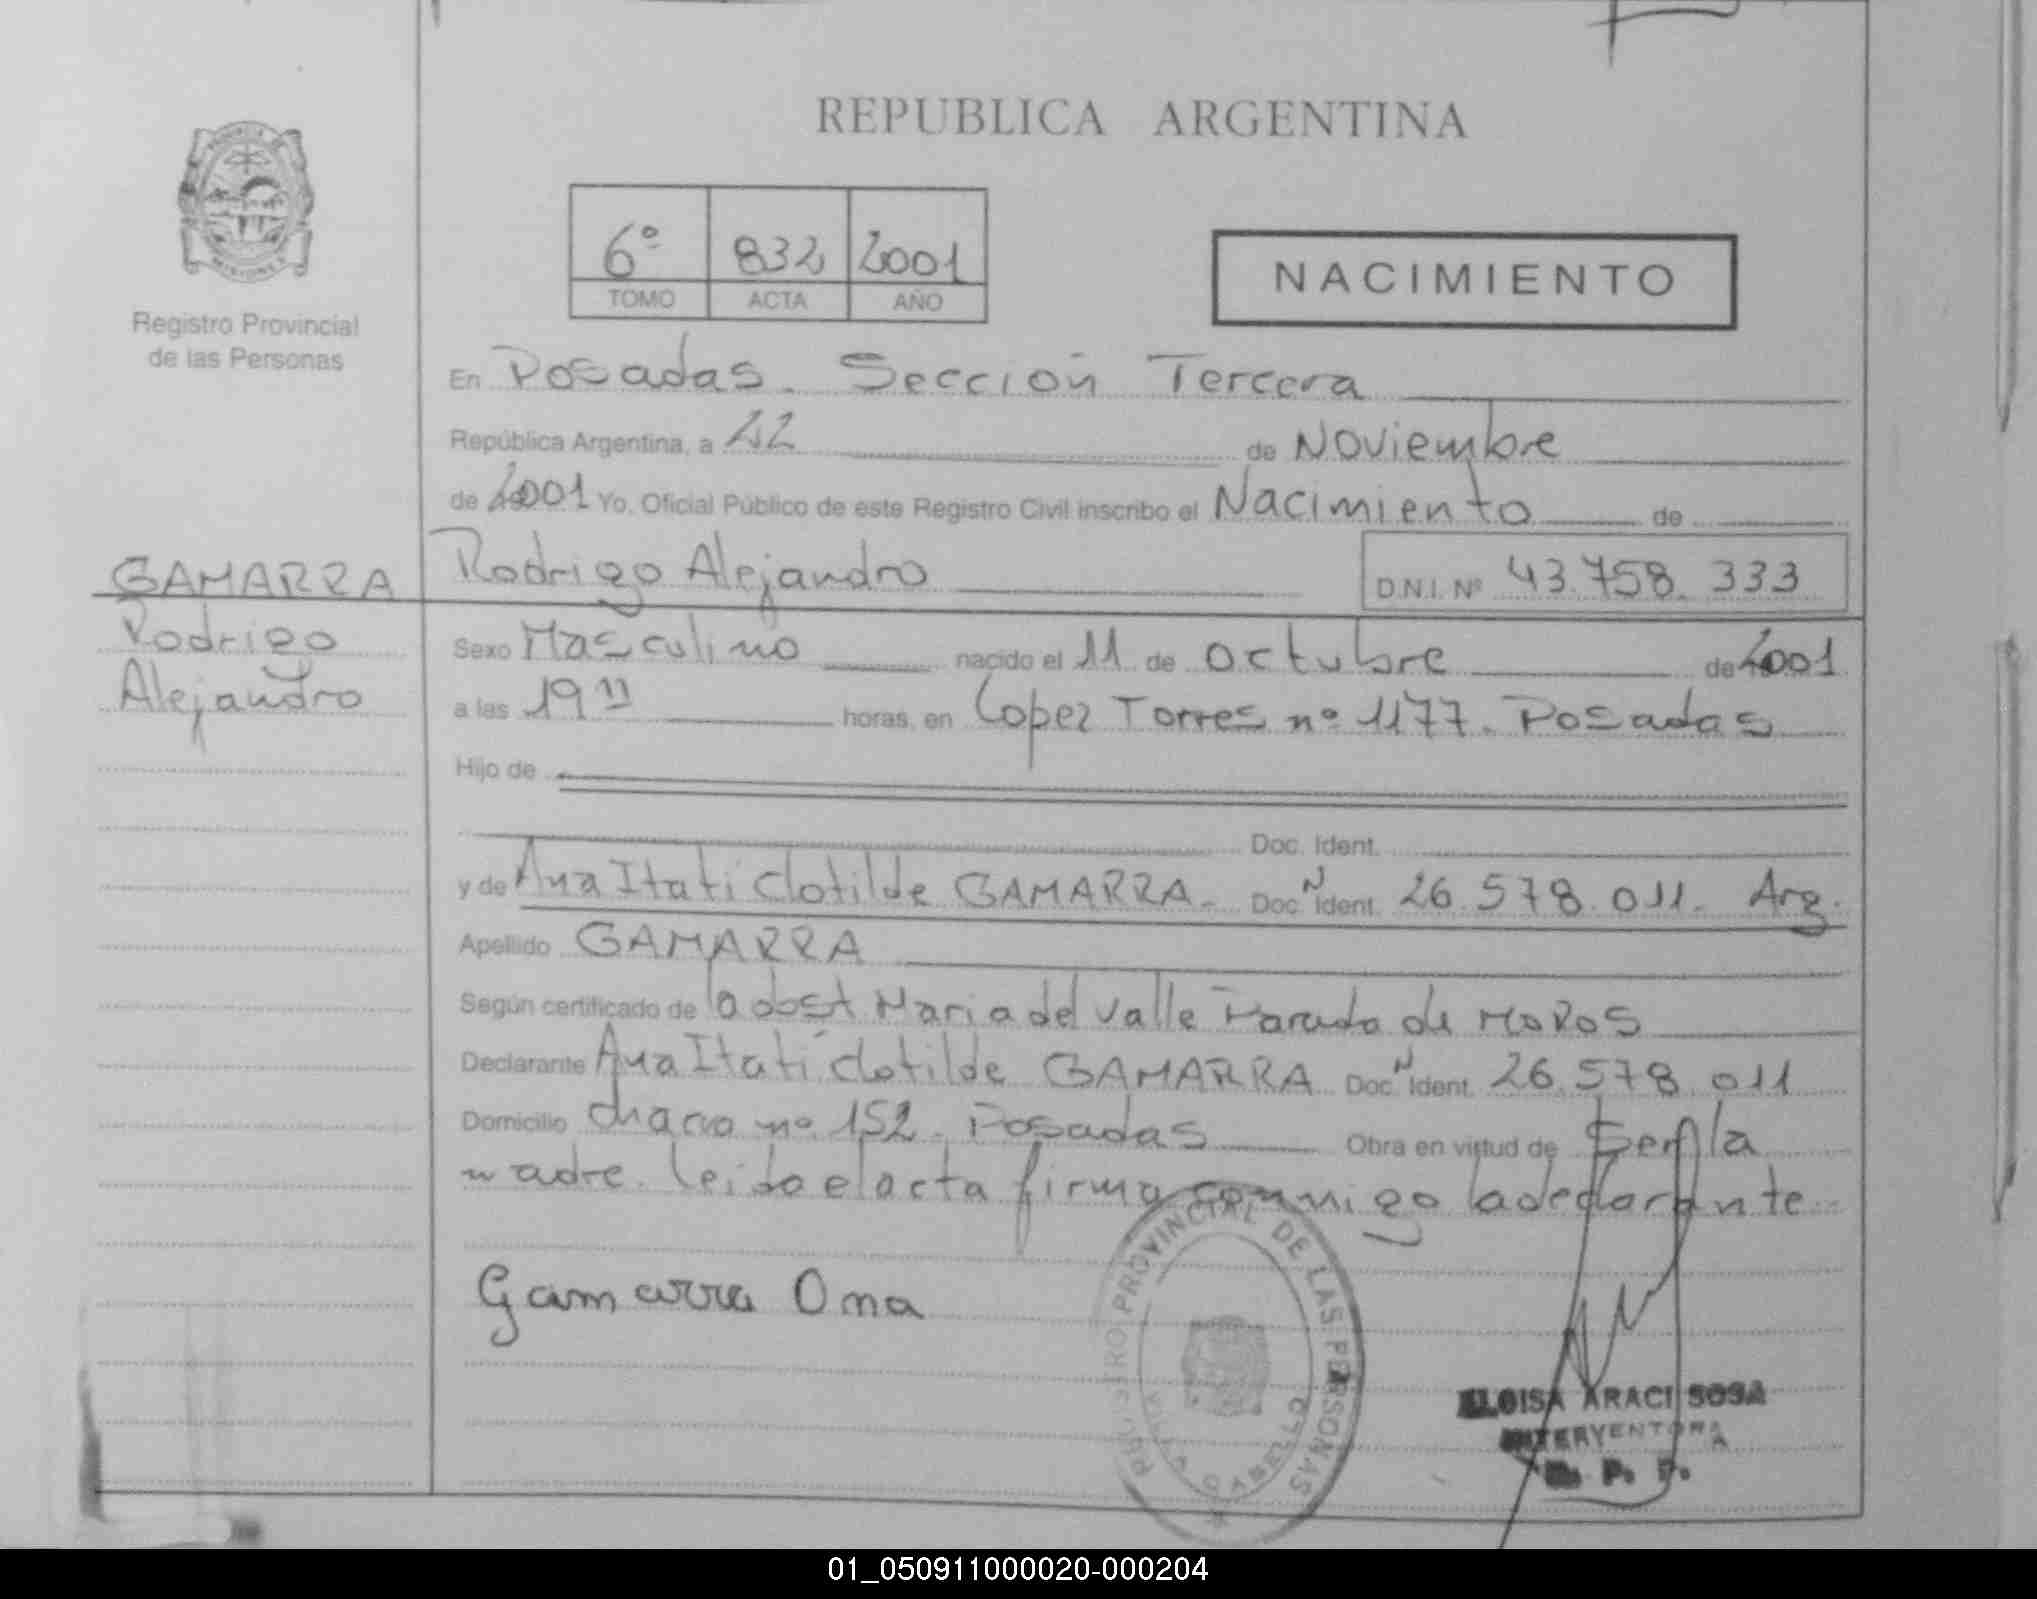 REPUBLICA ARGENTINA
6º 832 2001
TOMO ACTA AÑO
NACIMIENTO
Registro Provincial
de las Personas
En Posadas. Sección Tercera
República Argentina, a 22 de Noviembre
de 2001 Yo, Oficial Público de este Registro Civil inscribo el Nacimiento de
GAMARRA
Rodrigo
Alejandro
Rodrigo Alejandro D.N.I. Nº 43.758.333
Sexo Masculino nacido el 11 de octubre de 2001
a las 19 11 horas, en Lopez Torres nº 1177. Posadas
Hijo de
Doc. Ident.
y de Ana Itati Clotilde GAMARRA. Doc. N Ident. 26.578.011. Arg.
Apellido GAMARRA
Según certificado de la obst Maria del Valle de
Declarante Ana Itatí Clotilde GAMARRA Doc. N Ident. 26.578.011
Domicilio chaco nº 152. Posadas Obra en virtud de Ser la
madre. Leida el acta firma conmigo la declarante
Gamarra Ana
REGISTRO PROVINCIAL DE LAS PERSONAS
ELOISA ARACI SOSA
INTERVENTORA
R. P. P.
01_050911000020-000204